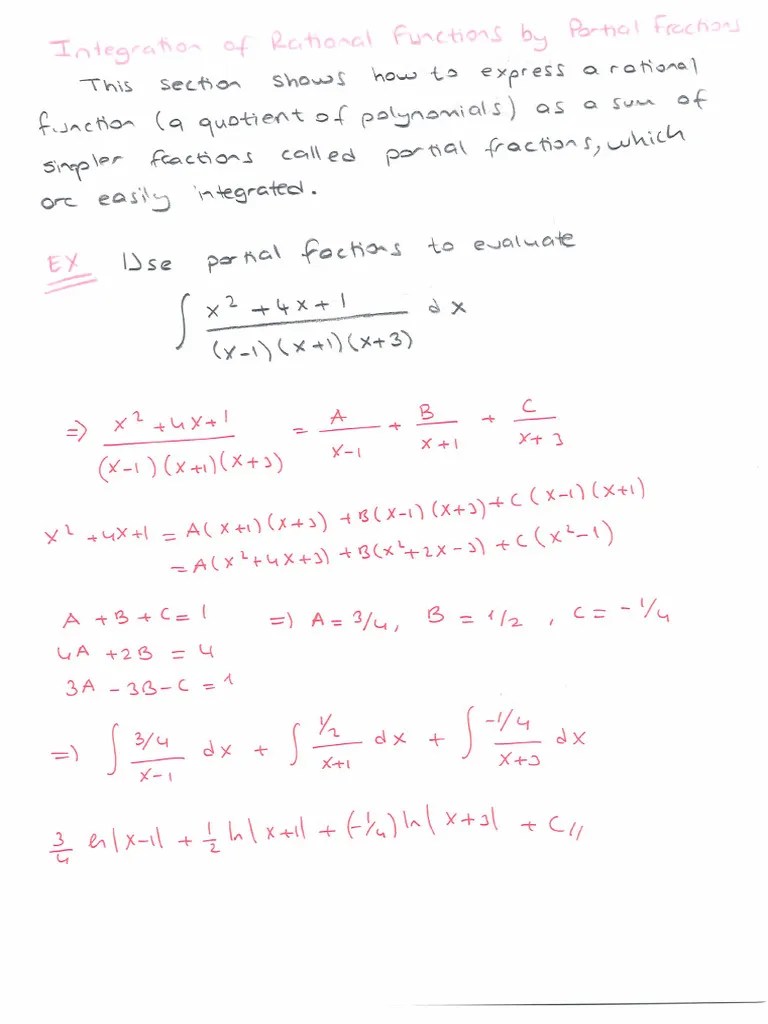 Integration of Rational Functions by Partial Fractions
This section shows how to express a rational
function (a quotient of polynomials) as a sum of
simpler fractions called partial fractions, which
are easily integrated.
EX Use partial factions to evaluate
∫ (x² + 4x + 1)/((x-1)(x+1)(x+3)) dx
=> (x² + 4x + 1)/((x-1)(x+1)(x+3)) = A/(x-1) + B/(x+1) + C/(x+3)
x² + 4x + 1 = A(x+1)(x+3) + B(x-1)(x+3) + C(x-1)(x+1)
= A(x² + 4x + 3) + B(x² + 2x - 3) + C(x² - 1)
A + B + C = 1 => A = 3/4, B = 1/2, C = -1/4
4A + 2B = 4
3A - 3B - C = 1
=> ∫ (3/4)/(x-1) dx + ∫ (1/2)/(x+1) dx + ∫ (-1/4)/(x+3) dx
3/4 ln|x-1| + 1/2 ln|x+1| + (-1/4) ln|x+3| + C //